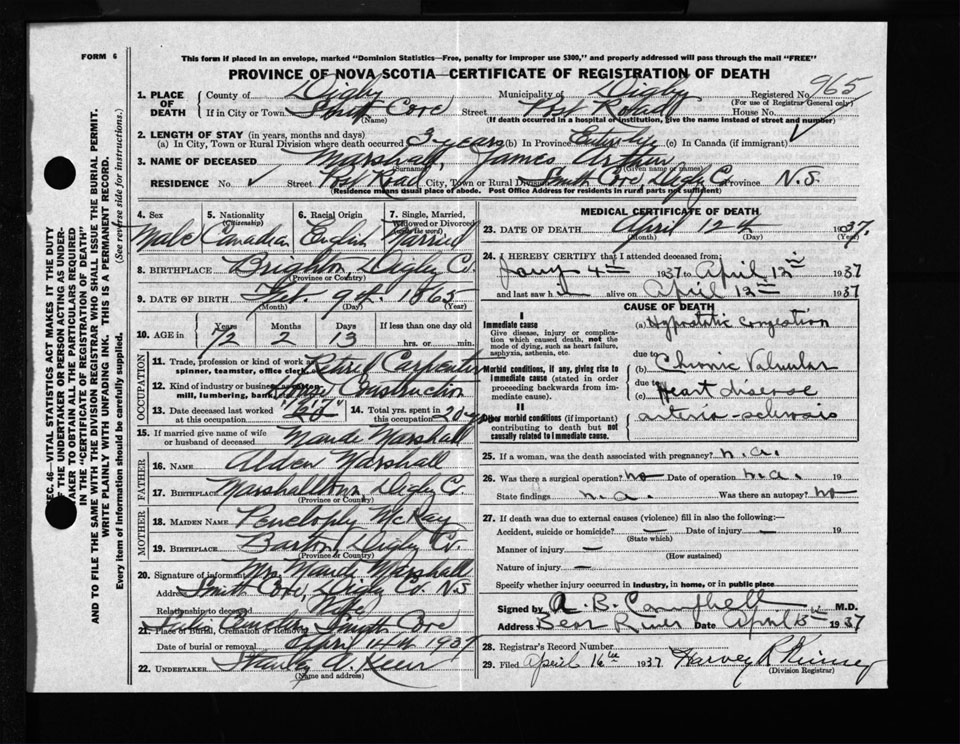 FORM 6
This form if placed in an envelope, marked "Dominion Statistics—Free, penalty for improper use $300," and properly addressed will pass through the mail "FREE"
PROVINCE OF NOVA SCOTIA—CERTIFICATE OF REGISTRATION OF DEATH
965
1. PLACE OF DEATH County of Digby Municipality of Digby Registered No.
(For use of Registrar General only)
If in City or Town Smith Cove Street Post Road House No.
(Name) (If death occurred in a hospital or institution, give the name instead of street and number)
2. LENGTH OF STAY (in years, months and days)
(a) In City, Town or Rural Division where death occurred 3 years (b) In Province Entirely (c) In Canada (if immigrant)
3. NAME OF DECEASED Marshall, James Arthur
(Surname) (Given name or names)
RESIDENCE No. ✓ Street Post Road City, Town or Rural Division Smith Cove, Digby Co. Province N.S.
(Residence means usual place of abode. Post Office Address for residents in rural parts not sufficient)
4. Sex 5. Nationality (Citizenship) 6. Racial Origin 7. Single, Married, Widowed or Divorced (write the word)
Male Canadian English Married
8. BIRTHPLACE Brighton Digby C.
(Province or Country)
9. DATE OF BIRTH Feb. 9th. 1865
(Month) (Day) (Year)
10. AGE in Years Months Days If less than one day old
72 2 13 hrs. or min.
OCCUPATION
11. Trade, profession or kind of work as spinner, teamster, office clerk, Retired Carpenter
12. Kind of industry or business as cotton mill, lumbering, bank, House Construction
13. Date deceased last worked at this occupation 14. Total yrs. spent in this occupation 20
15. If married give name of wife or husband of deceased Maude Marshall
FATHER
16. NAME Alden Marshall
17. BIRTHPLACE Marshalltown, Digby C.
(Province or Country)
MOTHER
18. MAIDEN NAME Penelophy McKay
19. BIRTHPLACE Barton Digby Co.
(Province or Country)
20. Signature of informant Mrs. Maude Marshall
Address Smith Cove, Digby Co. N.S
Relationship to deceased Wife
21. Place of Burial, Cremation or Removal Smith Cove
Date of burial or removal April 14th 1937
22. UNDERTAKER Stanley A.
(Name and address)
MEDICAL CERTIFICATE OF DEATH
23. DATE OF DEATH April 12th 1937.
(Month) (Day) (Year)
24. I HEREBY CERTIFY that I attended deceased from:
Jany 4th 1937 to April 12th 1937
and last saw him alive on April 12th 1937
CAUSE OF DEATH
I
Immediate cause (a) Hypostatic congestion
Give disease, injury or complication which caused death, not the mode of dying, such as heart failure, asphyxia, asthenia, etc.
due to
Morbid conditions, if any, giving rise to immediate cause (stated in order proceeding backwards from immediate cause). (b) Chronic Valvular
due to
(c) Heart disease
II
Other morbid conditions (if important) contributing to death but not causally related to immediate cause. arterio-sclerosis
25. If a woman, was the death associated with pregnancy? n.a.
26. Was there a surgical operation? no Date of operation n.a.
State findings n.a. Was there an autopsy? no
27. If death was due to external causes (violence) fill in also the following:—
Accident, suicide or homicide? — Date of injury — 19
(State which)
Manner of injury —
(How sustained)
Nature of injury —
Specify whether injury occurred in industry, in home, or in public place
Signed by A. B. Campbell M.D.
Address Bear River Date April 13th 1937
28. Registrar's Record Number
29. Filed April 16th 1937. Harvey R
(Division Registrar)
SEC. 46—VITAL STATISTICS ACT MAKES IT THE DUTY
OF THE UNDERTAKER OR PERSON ACTING AS UNDER-
TAKER TO OBTAIN ALL THE PARTICULARS REQUIRED
IN THE "CERTIFICATE OF REGISTRATION OF DEATH"
AND TO FILE THE SAME WITH THE DIVISION REGISTRAR WHO SHALL ISSUE THE BURIAL PERMIT.
WRITE PLAINLY WITH UNFADING INK. THIS IS A PERMANENT RECORD.
Every item of information should be carefully supplied. (See reverse side for instructions.)